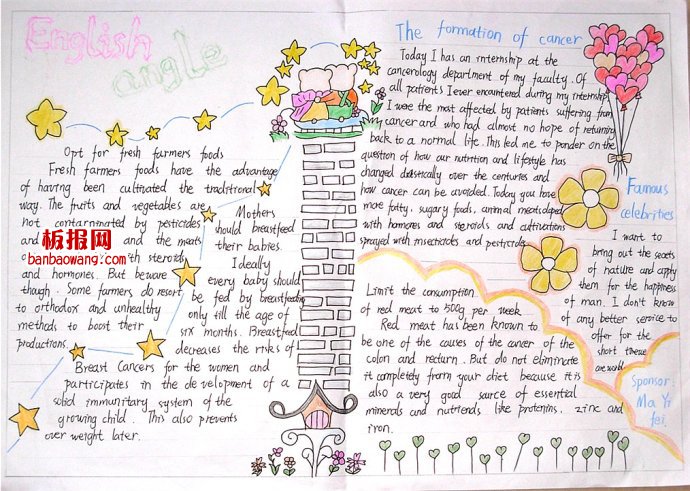 English
angle
Opt for fresh farmers foods
Fresh farmers foods have the advantage
of having been cultivated the traditional
way. The fruits and vegetables are
not contaminated by pesticides
and and the meats
th steroids
and hormones. But beware
though. Some farmers do resort
to orthodox and unhealthy
methods to boost their
productions.
板报网
banbaowang.com
Mothers
should breastfeed
their babies.
Ideally
every baby should
be fed by breastfeeding
only till the age of
six months. Breastfeed
decreases the risks of
Breast Cancers for the women and
participates in the development of a
solid immunitary system of the
growing child. This also prevents
over weight later.
The formation of cancer
Today I has an internship at the
cancerology department of my faculty. Of
all patients I ever encountered during my internship
I were the most affected by patients suffering from
cancer and who had almost no hope of returning
back to a normal life. This led me to ponder on the
question of how our nutrition and lifestyle has
changed drastically over the centuries and
how cancer can be avoided. Today you have
more fatty, sugary foods, animal meats doped
with hormones and steroids and cultivations
sprayed with insecticides and pesticides.
Limit the consumption
of red meat to 500g per week
Red meat has been known to
be one of the causes of the cancer of the
colon and rectum. But do not eliminate
it completely from your diet because it is
also a very good source of essential
minerals and nutriends like protenins, zinc and
iron.
Famous
celebrities
I want to
bring out the secrets
of nature and apply
them for the happiness
of man. I don't know
of any better service to
offer for the
short theme
are world
Sponsor:
Ma Yi
fei.